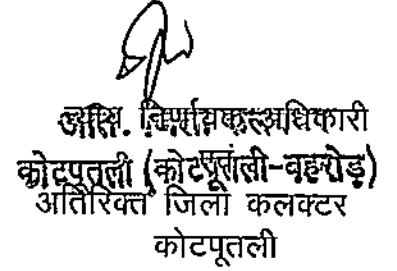 अधिकारी
कोटपूतली (कोटपूतली-बहरोड़)
अतिरिक्त जिला कलक्टर
कोटपूतली